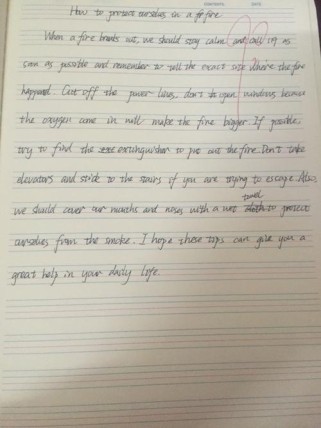 How to protect ourselves in a fire
When a fire breaks out, we should stay calm and call 119 as
soon as possible and remember to tell the exact site where the fire
happened. Cut off the power lines, don't open windows because
the oxygen come in will make the fire bigger. If possible,
try to find the extinguisher to put out the fire. Don't take
elevators and stick to the stairs if you are trying to escape. Also,
we should cover our mouths and noses with a wet towel to protect
ourselves from the smoke. I hope these tips can give you a
great help in your daily life.